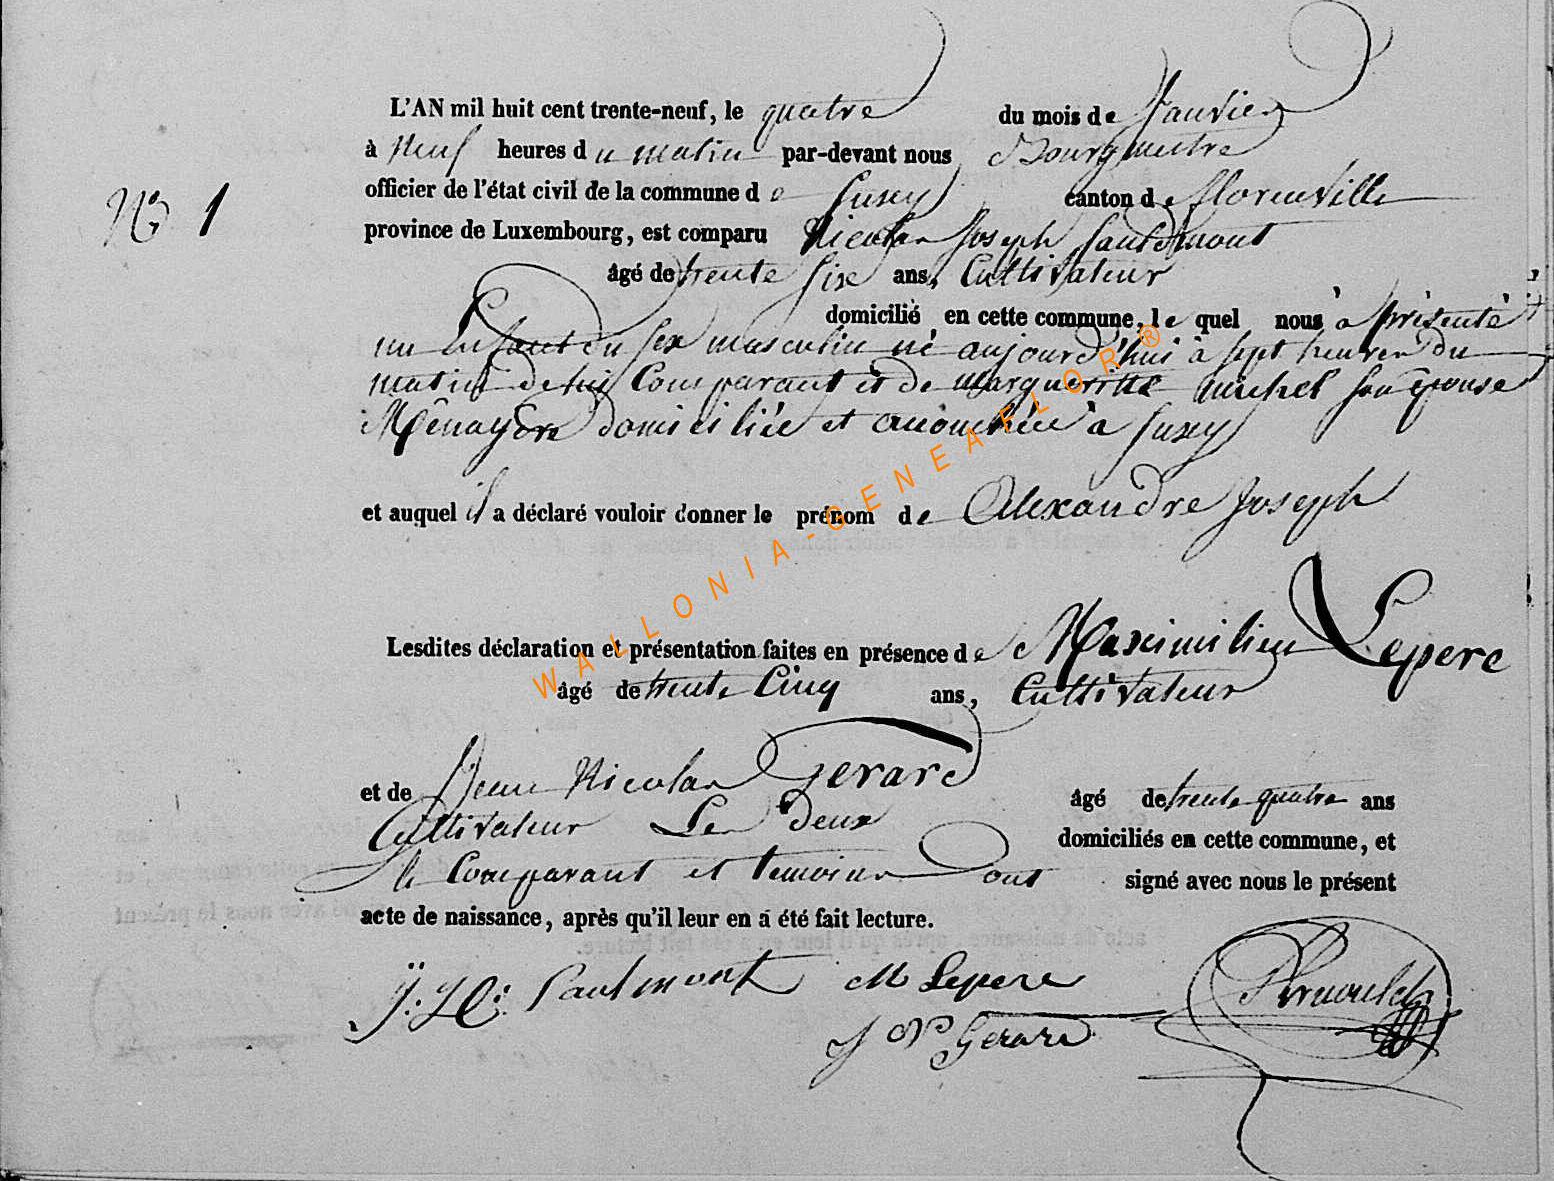 L'AN mil huit cent trente-neuf, le quatre du mois de Janvier
à Neuf heures du matin par-devant nous Bourgmestre
officier de l'état civil de la commune de Suxy canton de florenville
N° 1
province de Luxembourg, est comparu Nicolas Joseph Sautmont
âgé de trente six ans, Cultivateur
domicilié en cette commune, le quel nous a présenté
un Enfant du sex masculin né aujourd'hui à sept heures du
matin de lui Comparant et de margueritte michel son épouse
Ménagere domiciliée et accouchée à Suxy
et auquel il a déclaré vouloir donner le prénom de Alexandre Joseph
Lesdites déclaration et présentation faites en présence de Maximilien Lepere
âgé de trente Cinq ans, Cultivateur
et de Jean Nicolas Gerard âgé de trente quatre ans
Cultivateur Les deux domiciliés en cette commune, et
le Comparant et temoins Dont signé avec nous le présent
acte de naissance, après qu'il leur en a été fait lecture.
Sautmont M Lepere
J N Gerard
WALLONIA-GENEAFLOR®